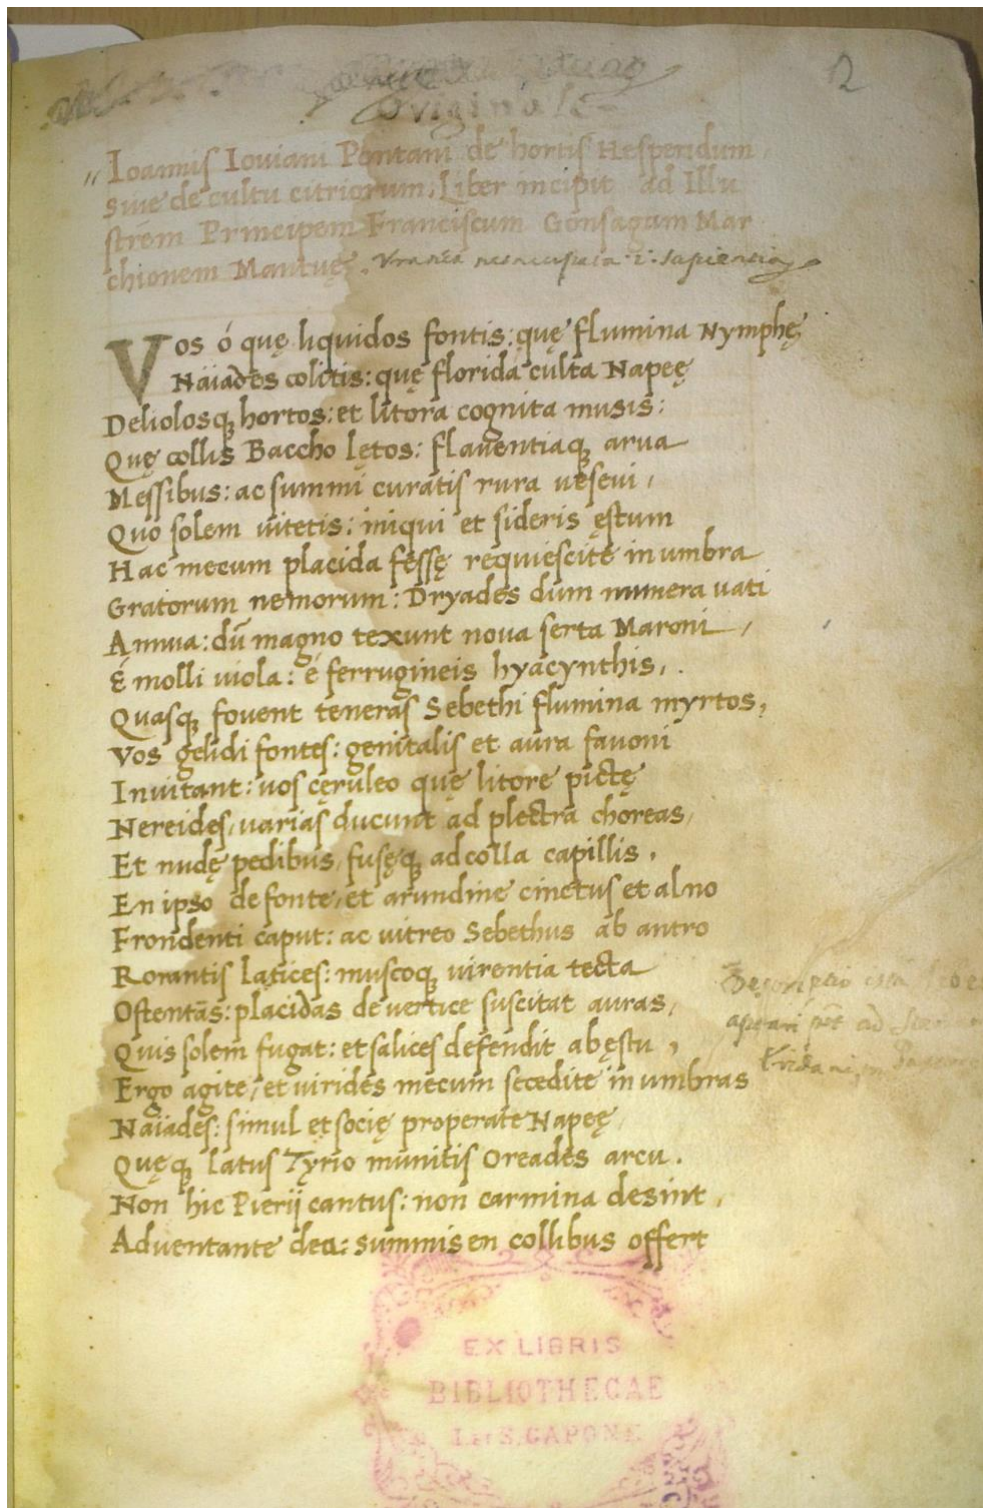 2
Originale
Ioannis Ioviani Pontani de hortis Hesperidum
sive de cultu citriorum, Liber incipit ad Illu
strem Principem Franciscum Gonsagam Mar
chionem Mantuę.
Vos ó quę liquidos fontis: quę flumina Nymphę
Näiades colitis: quę florida culta Napeę
Deliolosq hortos: et litora cognita musis:
Quę collis Baccho lętos: flauentiaq arua
Messibus: ac summi curatis rura veseui,
Quo solem uitetis: iniqui et sideris ęstum
Hac mecum placida fessę requiescite in umbra
Gratorum nemorum: Dryades dum munera uati
Annua: dū magno texunt nova serta Maroni,
E molli uiola: é ferrugineis hyacynthis,.
Quasq fouent teneras Sebethi flumina myrtos,
Vos gelidi fontes: genitalis et aura fauoni
Inuitant: uos cęruleo quę litore pictę
Nereides, varias ducunt ad plectra choreas,
Et nudę pedibus, fusęq ad colla capillis.
En ipso de fonte, et arundine cinctus et alno
Frondenti caput: ac uitreo Sebethus ab antro
Rorantis latices: muscoq uirentia tecta
Ostentās: placidas de vertice suscitat auras,
Quis solem fugat: et salices defendit ab ęstu,
Ergo agite, et uirides mecum secedite in umbras
Näiades: simul et socię properate Napeę,
Quęq latus Tyrio munitis Oreades arcu.
Non hic Pierij cantus: non carmina desint,
Aduentante dea: summis en collibus offert
EX LIBRIS
BIBLIOTHECAE
S. CAPONE